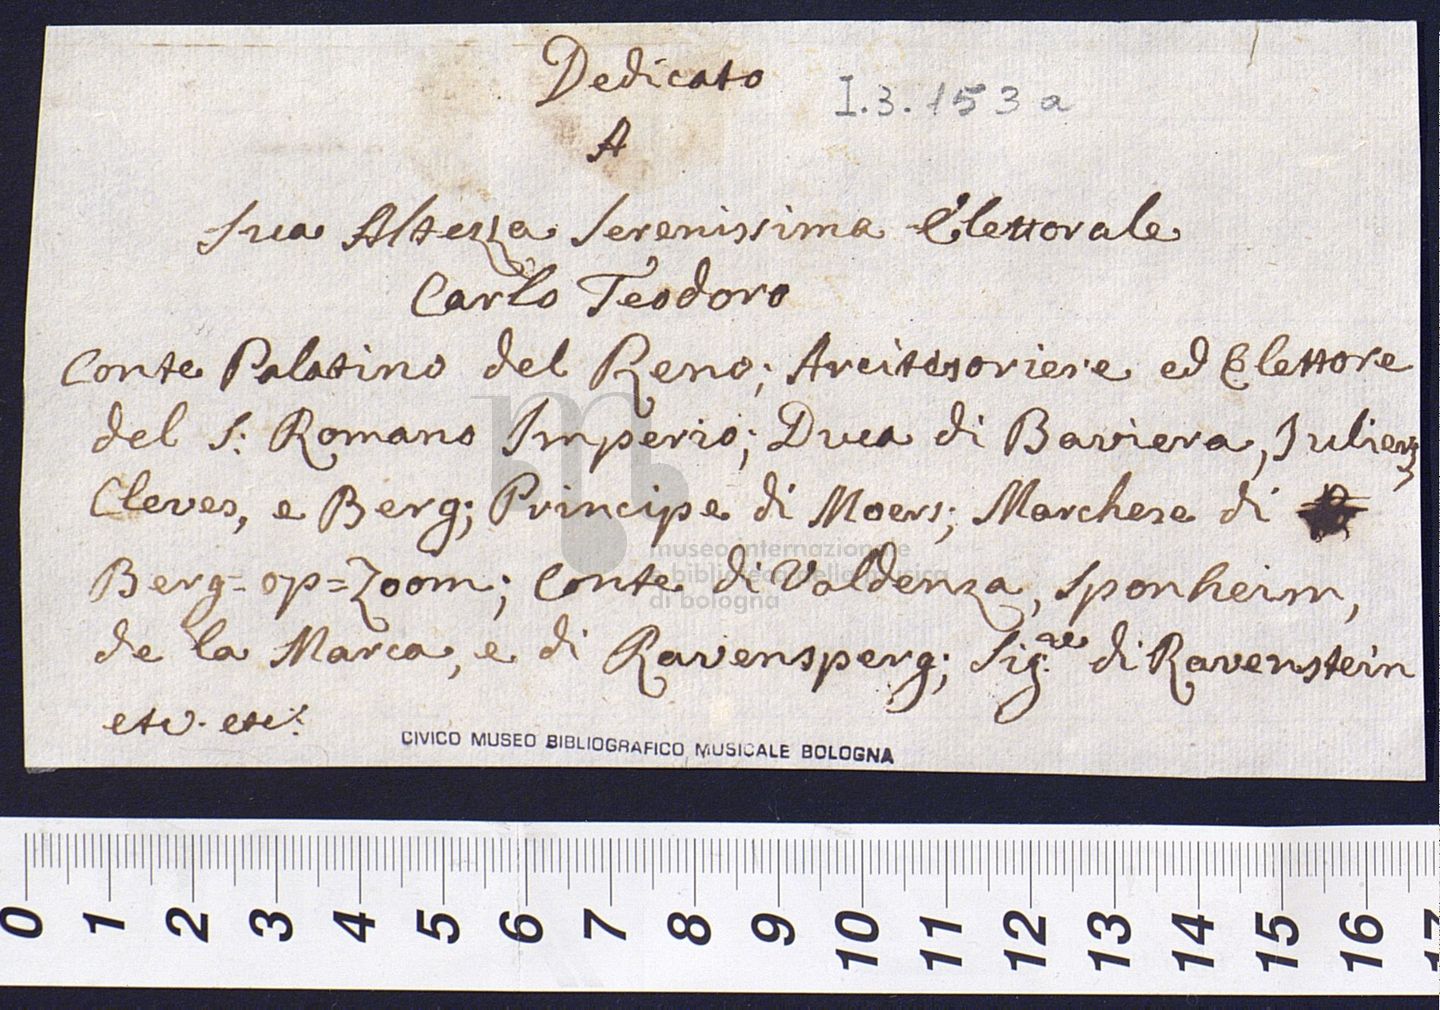 Dedicato
I.3.153a
A
Sua Altezza Serenissima Elettorale
Carlo Teodoro
Conte Palatino del Reno; Arcitesoriere ed Elettore
del S: Romano Imperio; Duca di Baviera, Juliers,
Cleves, e Berg; Principe di Moers; Marchese di
Berg=op=Zoom; Conte di Valdenza, Sponheim,
de la Marca, e di Ravensperg; Sig:re di Ravenstein
etc. etc:
CIVICO MUSEO BIBLIOGRAFICO MUSICALE BOLOGNA
museo internazionale
e biblioteca della musica
di bologna
0 1 2 3 4 5 6 7 8 9 10 11 12 13 14 15 16 17